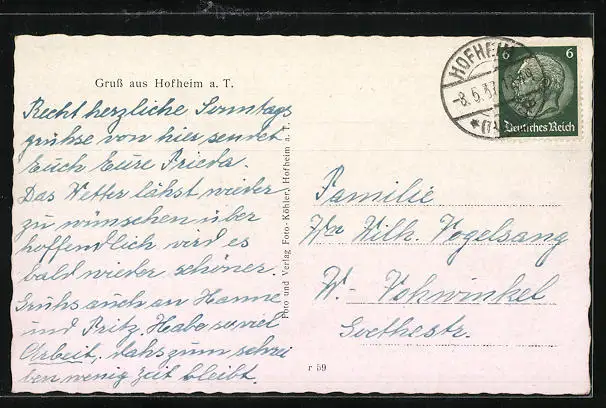 Gruß aus Hofheim a. T.
Recht herzliche Sonntags
grühse von hier sendet
Euch Eure Frieda.
Das Wetter lähst wieder
zu wünschen über
hoffendlich wird es
bald wieder schöner.
Grühs auch an Hanne
und Fritz. Habe soviel
Arbeit, dahs zum schrei
ben wenig Zeit bleibt.
Foto und Verlag Foto-Köhler, Hofheim a. T.
HOFHEIM
-8.5.37
6 6
Deutsches Reich
Familie
Wilh. Vogelsang
W.- Vohwinkel
Goethestr.
r 59